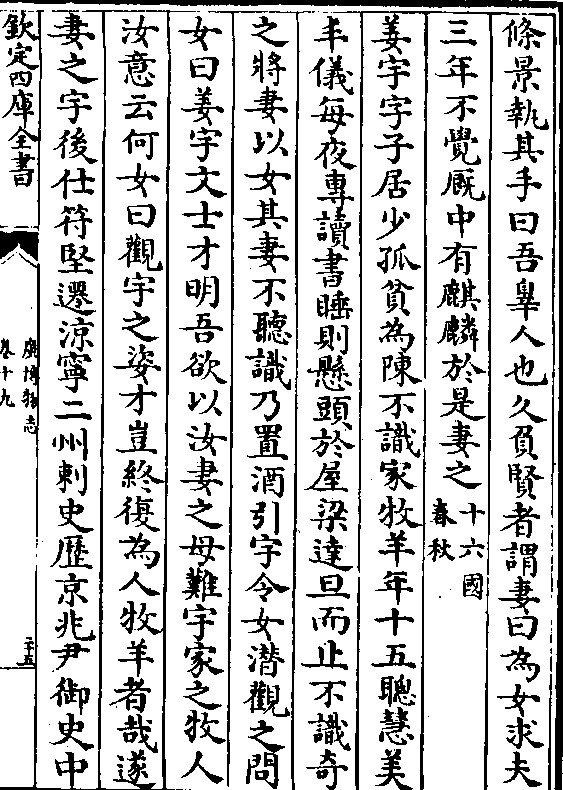 條景執其手曰吾辠人也久負賢者謂妻曰為女求夫
三年不覺厩中有麒麟於是妻之十六國春秋
姜宇字子居少孤貧為陳不識家牧羊年十五聰慧美
丰儀每夜專讀書睡則懸頭於屋梁達旦而止不識奇
之將妻以女其妻不聽識乃置酒引宇令女潛觀之問
女曰姜宇文士才明吾欲以汝妻之母難宇家之牧人
汝意云何女曰觀宇之姿才豈終復為人牧羊者哉遂
妻之宇後仕符堅遷涼寧二州刺史歴京兆尹御史中
欽定四庫全書
廣博物志
卷十九
二十五